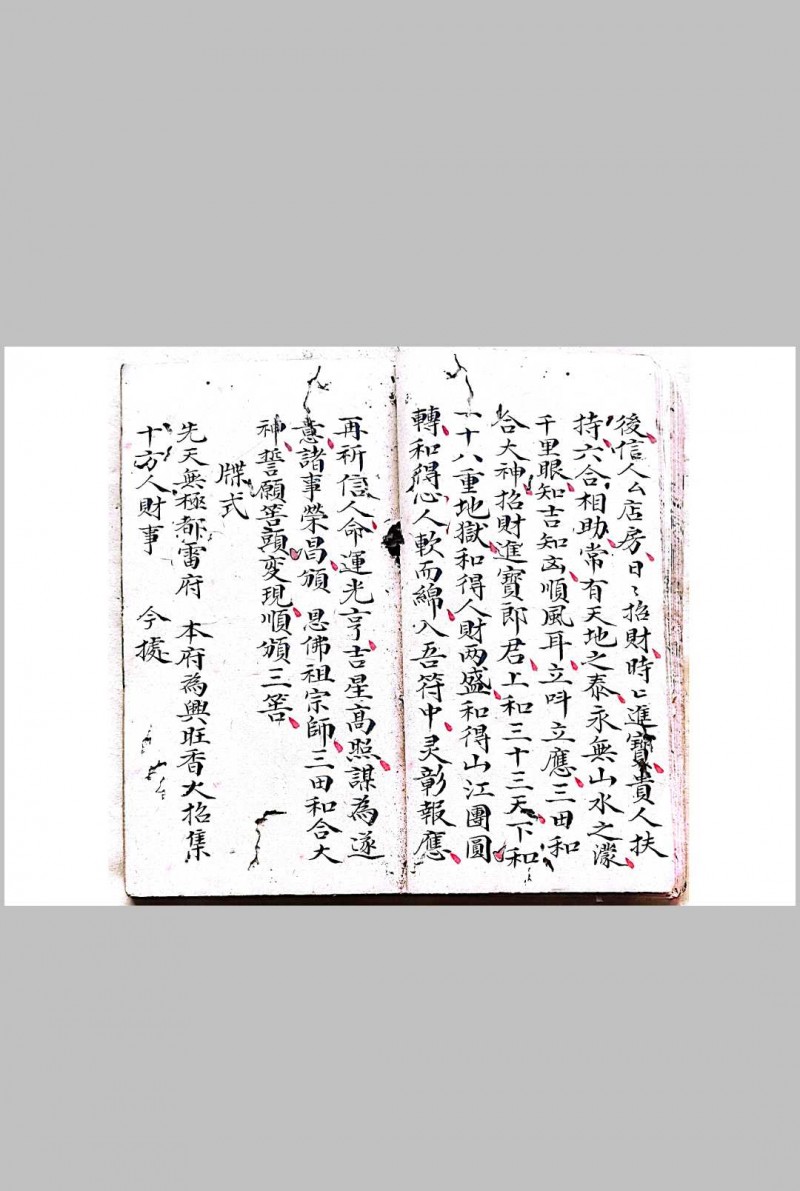 後信人厶店房日〻招財時〻進寶貴人扶
持六合相助常有天地之泰永無山水之濛
千里眼知吉知凶順風耳立呌立應三田和
合大神招財進寶郎君上和三十三天下和
一十八重地獄和得人財两盛和得山江團圓
轉和得心人軟而綿入吾符中灵彰報應
再祈信人命運光亨吉星高照謀為遂
意諸事榮昌頒恩佛祖宗師三田和合大
神誓願筶頭変現順頒三筶
牒式
先天無極都雷府 本府為興旺香火招集
十方人財事 今據